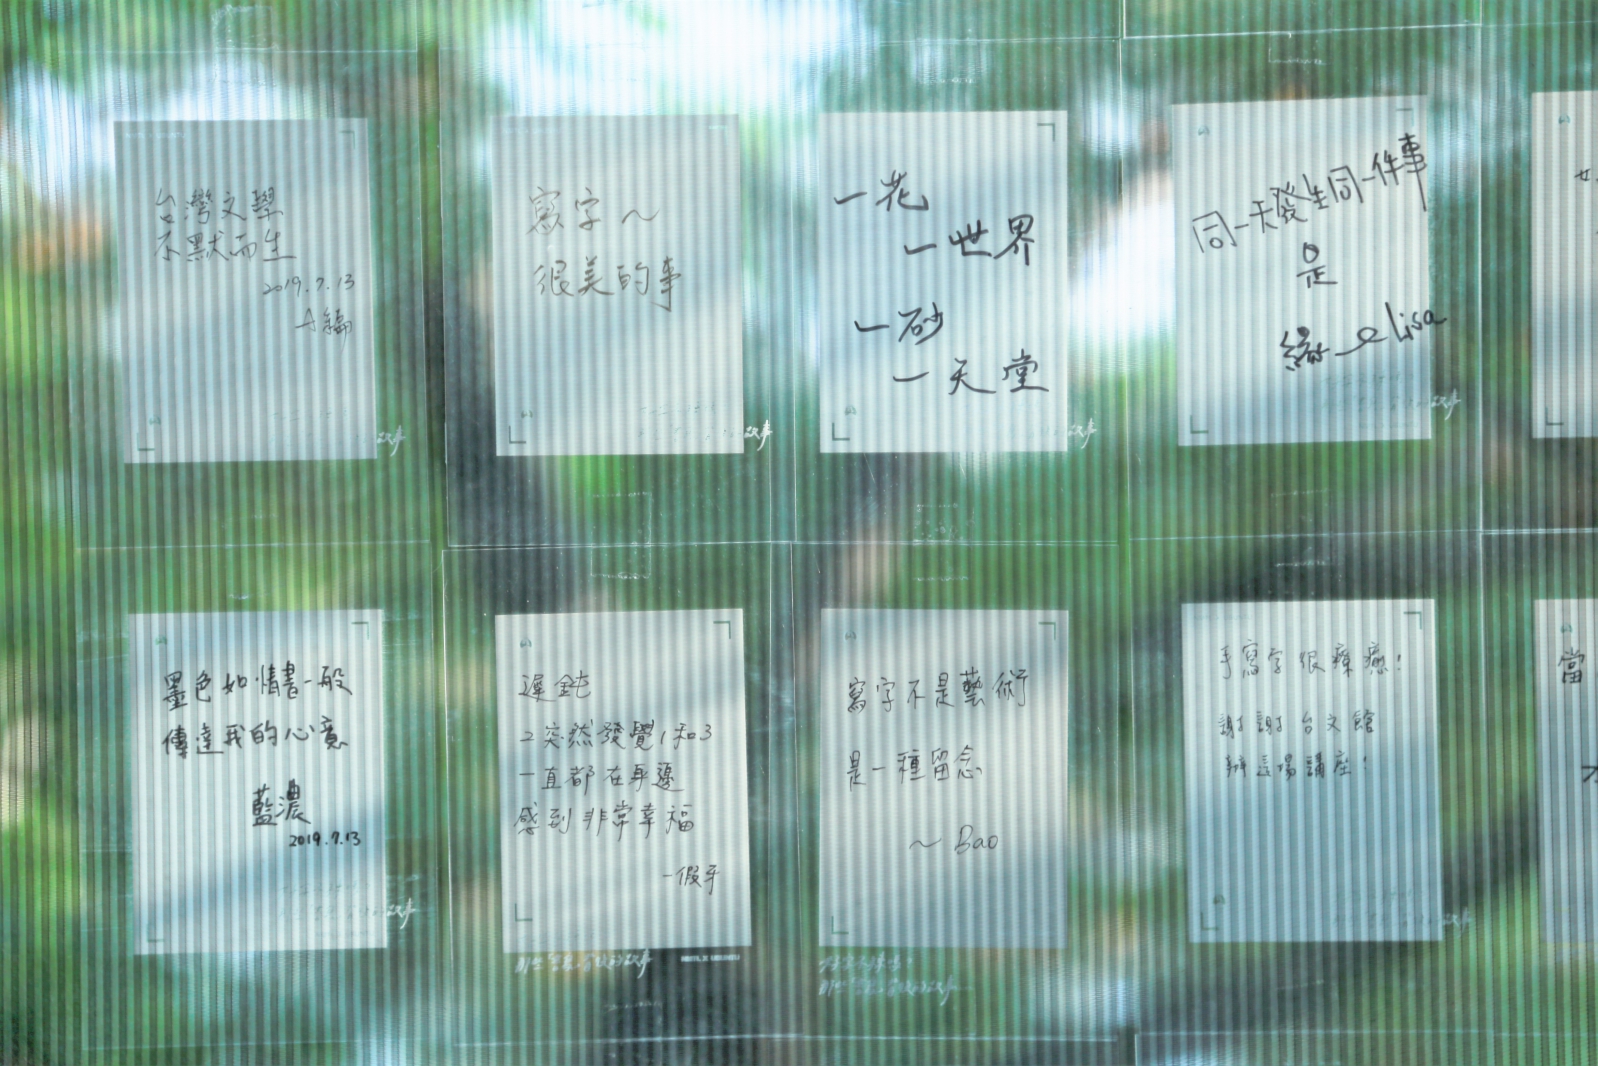 台灣文學
不默而生
2019.7.13
A編
寫字～
很美的事
一花
一世界
一砂
一天堂
同一天發生同一件事
是
緣 elisa
故事
故事
故事
故事
墨色如情書一般
傳達我的心意
藍濃
2019.7.13
遲鈍
2突然發覺1和3
一直都在身邊
感到非常幸福
一假牙
寫字不是藝術
是一種留念
～Bao
手寫字很療癒！
謝謝台文館
辦這場講座！
當
故事
故事
故事